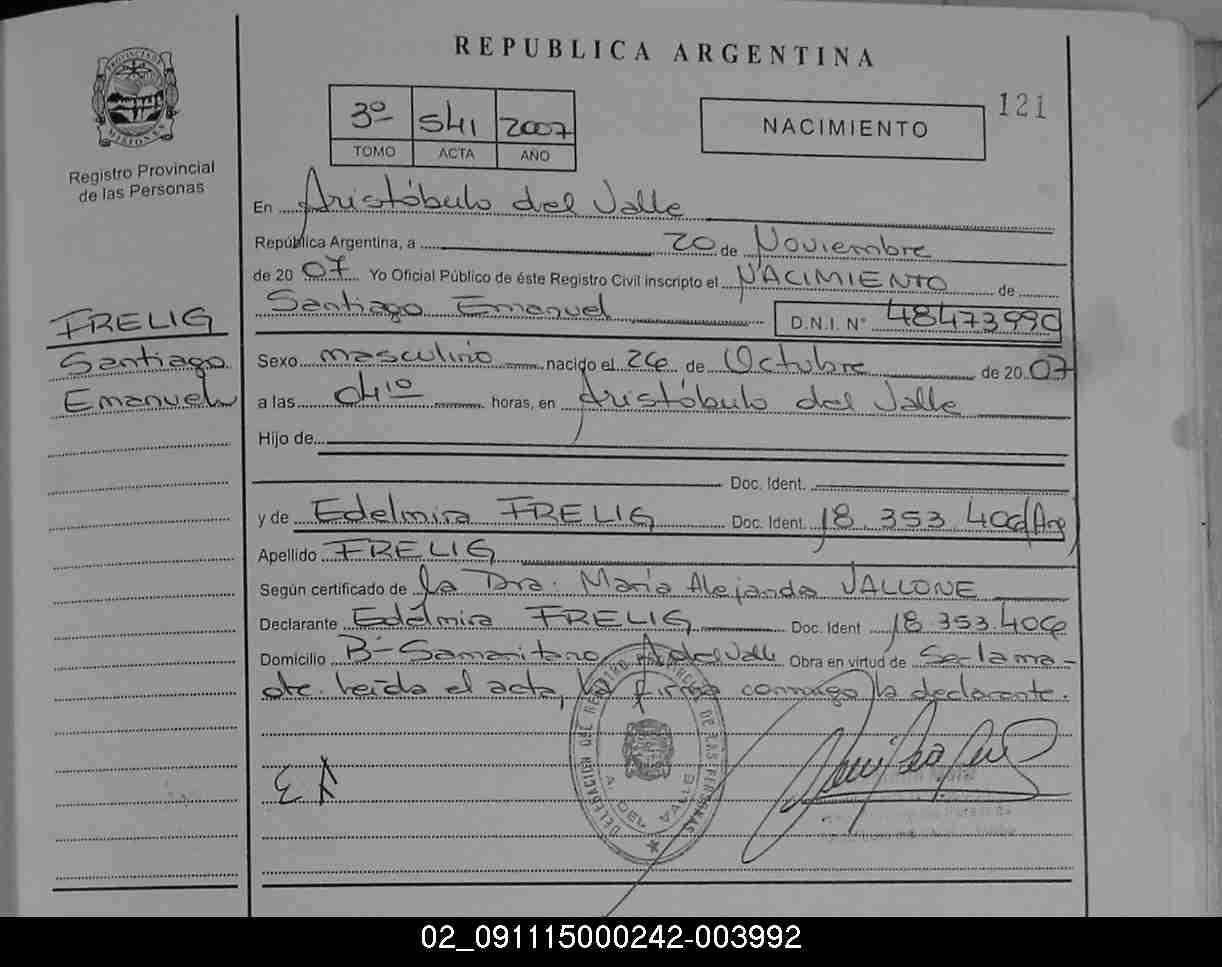 REPUBLICA ARGENTINA
121
PROVINCIA DE MISIONES
Registro Provincial
de las Personas
3º 541 2007
TOMO ACTA AÑO
NACIMIENTO
En Aristóbulo del Valle
República Argentina, a 20 de Noviembre
de 2007 Yo Oficial Público de éste Registro Civil inscripto el NACIMIENTO de
Santiago Emanuel D.N.I. Nº 48473990
FRELIG
Santiago
Emanuel
Sexo masculino nacido el 26 de Octubre de 2007
a las 04¹⁰ horas, en Aristóbulo del Valle
Hijo de
Doc. Ident.
y de Edelmira FRELIG Doc. Ident. 18 353 406 (Arg)
Apellido FRELIG
Según certificado de la Dra. Maria Alejanda VALLONE
Declarante Edelmira FRELIG Doc. Ident 18 353.406
Domicilio Bº Samaritano A del Valle Obra en virtud de Seclama-
nte. leida el acta, la firma conmigo la declarante.
E F
DELEGACION DEL REGISTRO PROVINCIAL DE LAS PERSONAS
A. DEL VALLE
02_091115000242-003992